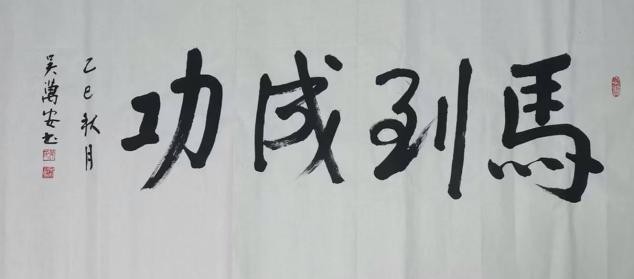 馬到成功
乙巳秋月
吴萬安书